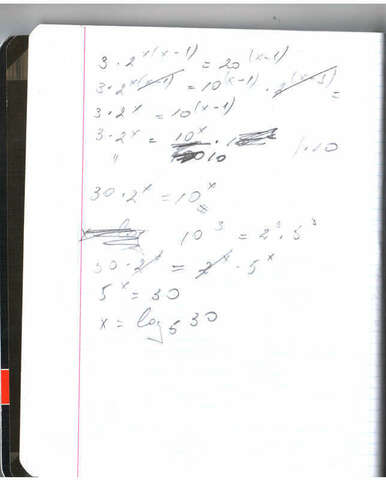 3 · 2^x(x-1) = 20^(x-1)
3 · 2^x(x-1) = 10^(x-1) · 2^(x-1) =
3 · 2^x = 10^(x-1)
3 · 2^x = 10^x / 10 /·10
"
30 · 2^x = 10^x
10^3 = 2^3 · 5^3
30 · 2^x = 2^x · 5^x
5^x = 30
x = log_5 30